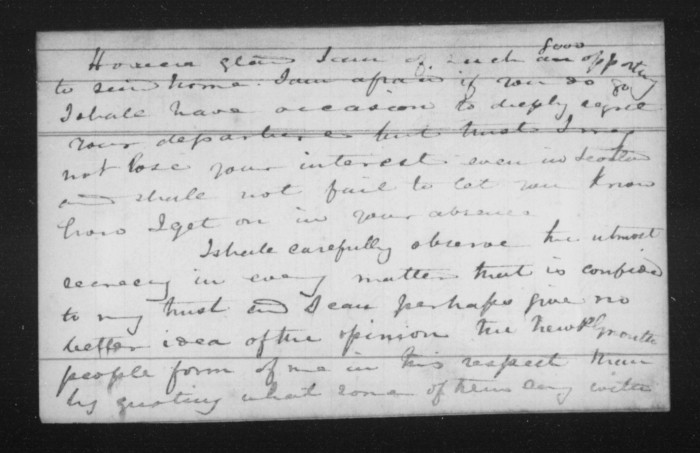 However glad I am of such an good opportunity
to send home. I am afraid if you do go
I shall have occasion to deeply regret
your departure but trust I may
not lose your interest even in Scotland
and shall not fail to let you know
how I get on in your absence
I shall carefully observe the utmost
secrecy in every matter that is confided
to my trust and I can perhaps give no
better idea of the opinion the New
people form of me in this respect than
by quoting what some of them say